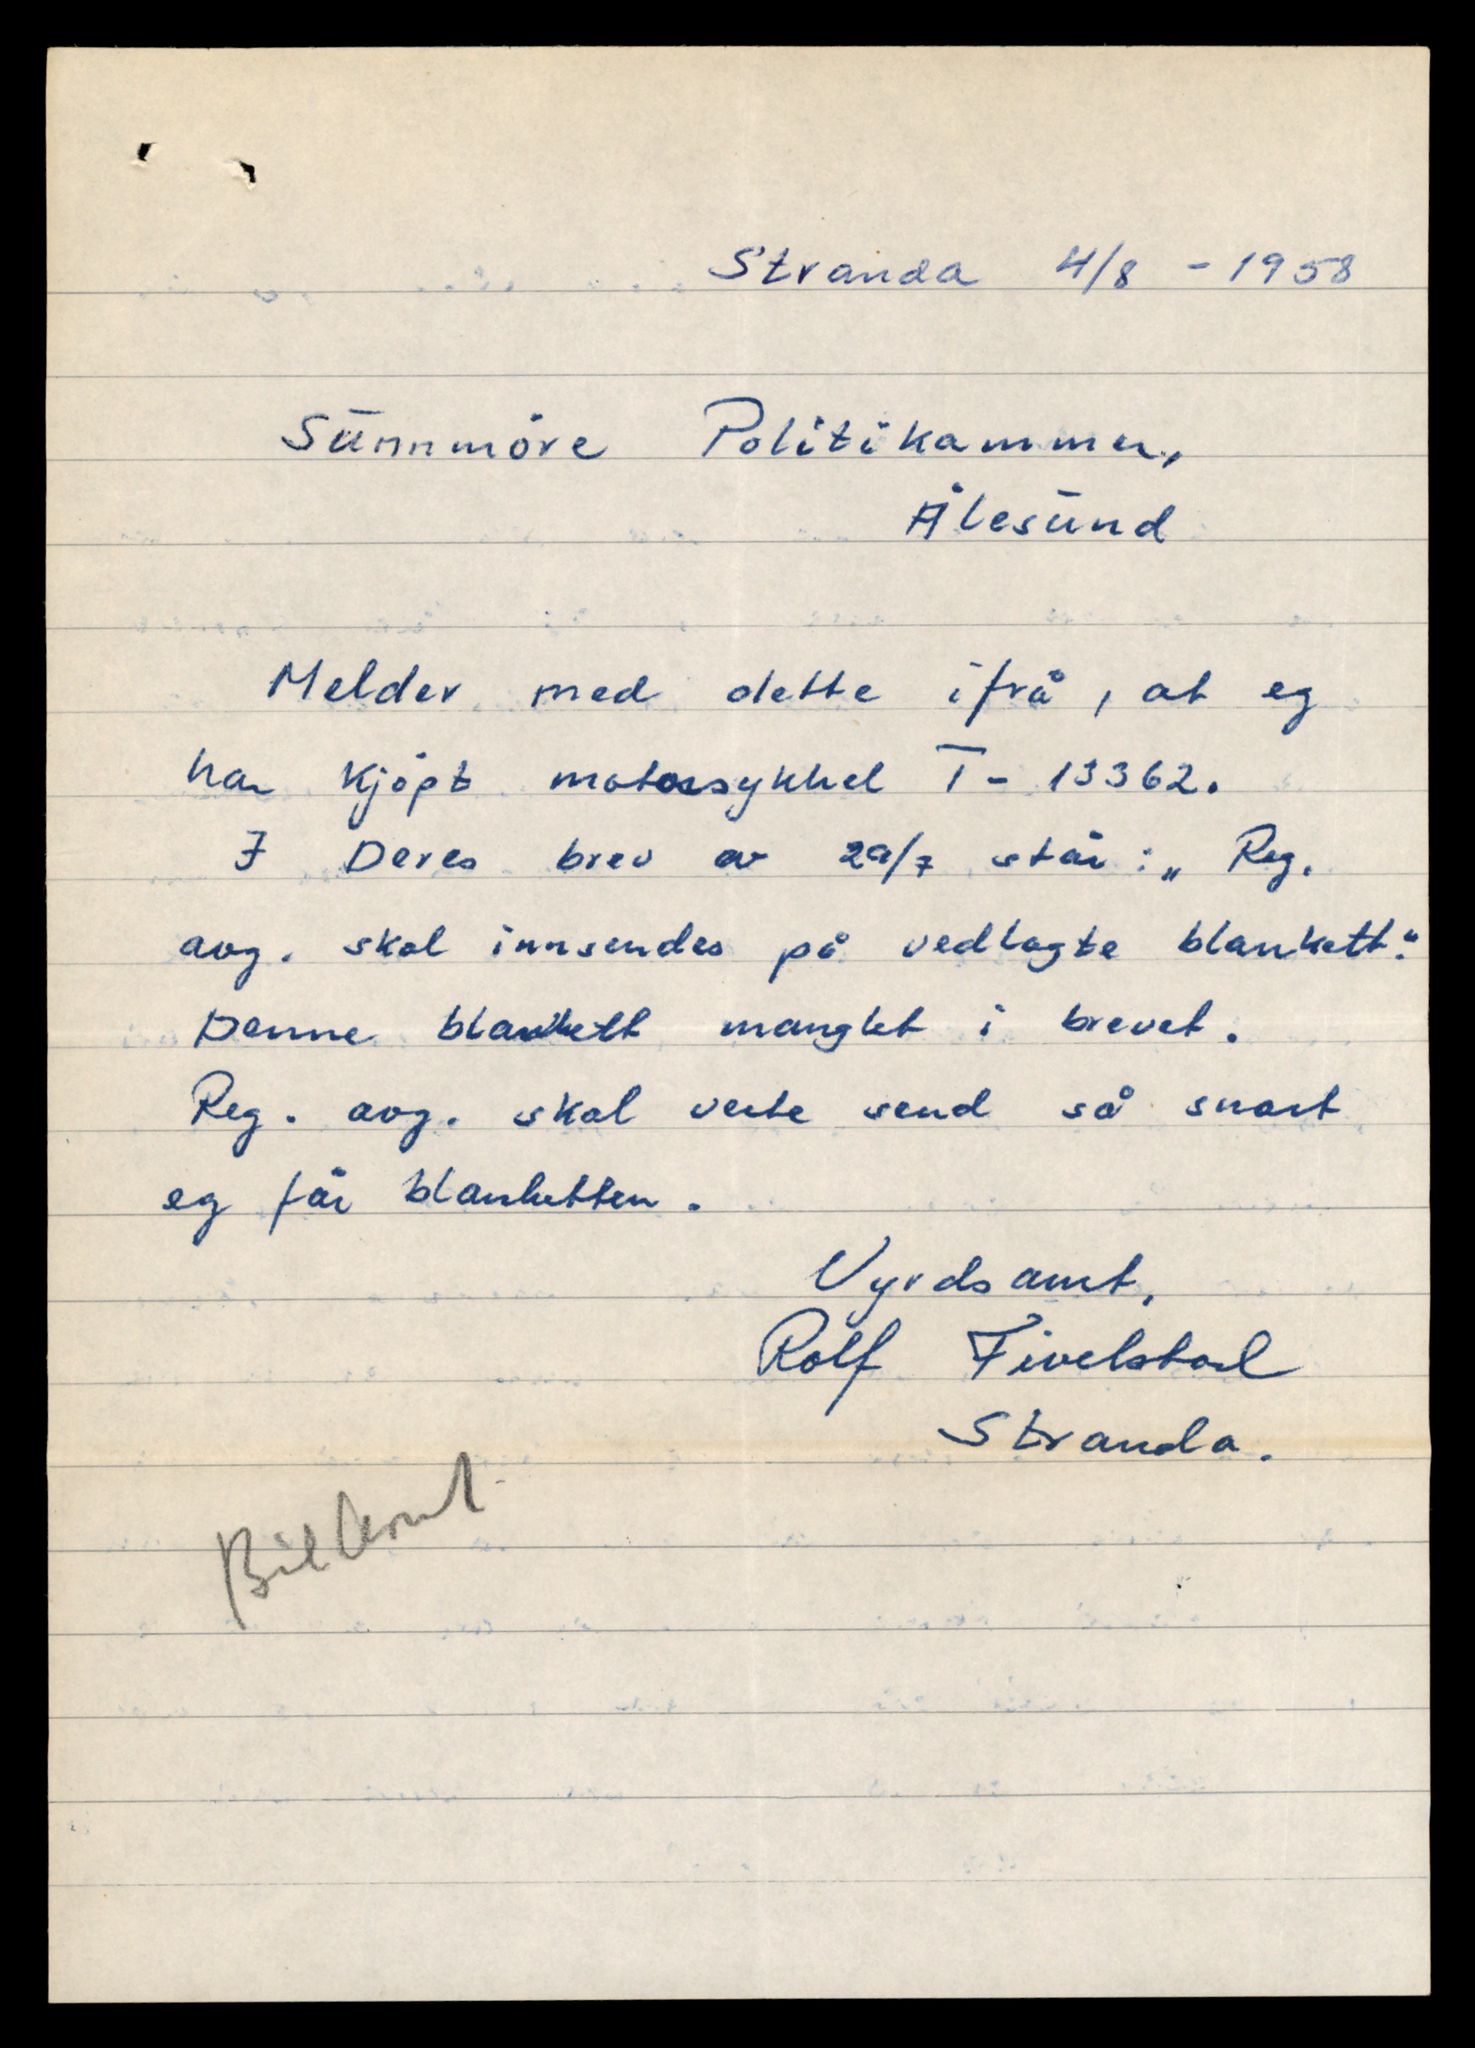 Stranda 4/8 - 1958
Sunnmöre Politikammer,
Ålesund
Melder med dette ifrå, at eg
har kjöpt motorsykkel T - 13362.
I Deres brev av 29/7 står: „Reg.
avg. skal innsendes på vedlagte blankett."
Denne blankett manglet i brevet.
Reg. avg. skal verte send så snart
eg får blanketten.
Vyrdsamt,
Rolf Fivelstad
Stranda.